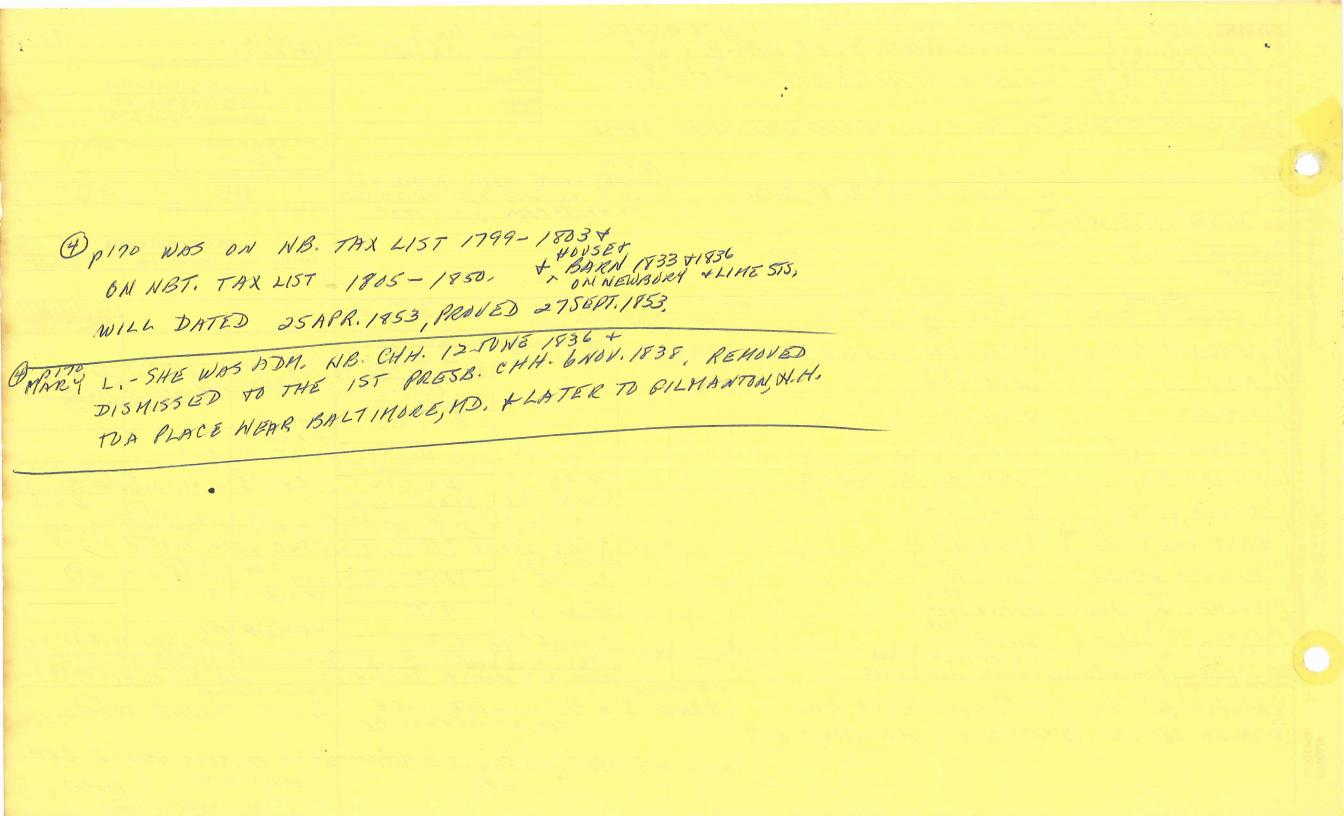 ④ p170 WAS ON NB. TAX LIST 1799-1803 &
ON NBT. TAX LIST 1805-1850. & HOUSE & BARN 1833 & 1836
^ ON NEWBURY & LIME STS.
WILL DATED 25 APR. 1853, PROVED 27 SEPT. 1853.
④ p170
MARY L. - SHE WAS ADM. NB. CHH. 12 JUNE 1836 &
DISMISSED TO THE 1ST PRESB. CHH. 6 NOV. 1838. REMOVED
TO A PLACE NEAR BALTIMORE, MD. & LATER TO GILMANTON, N.H.